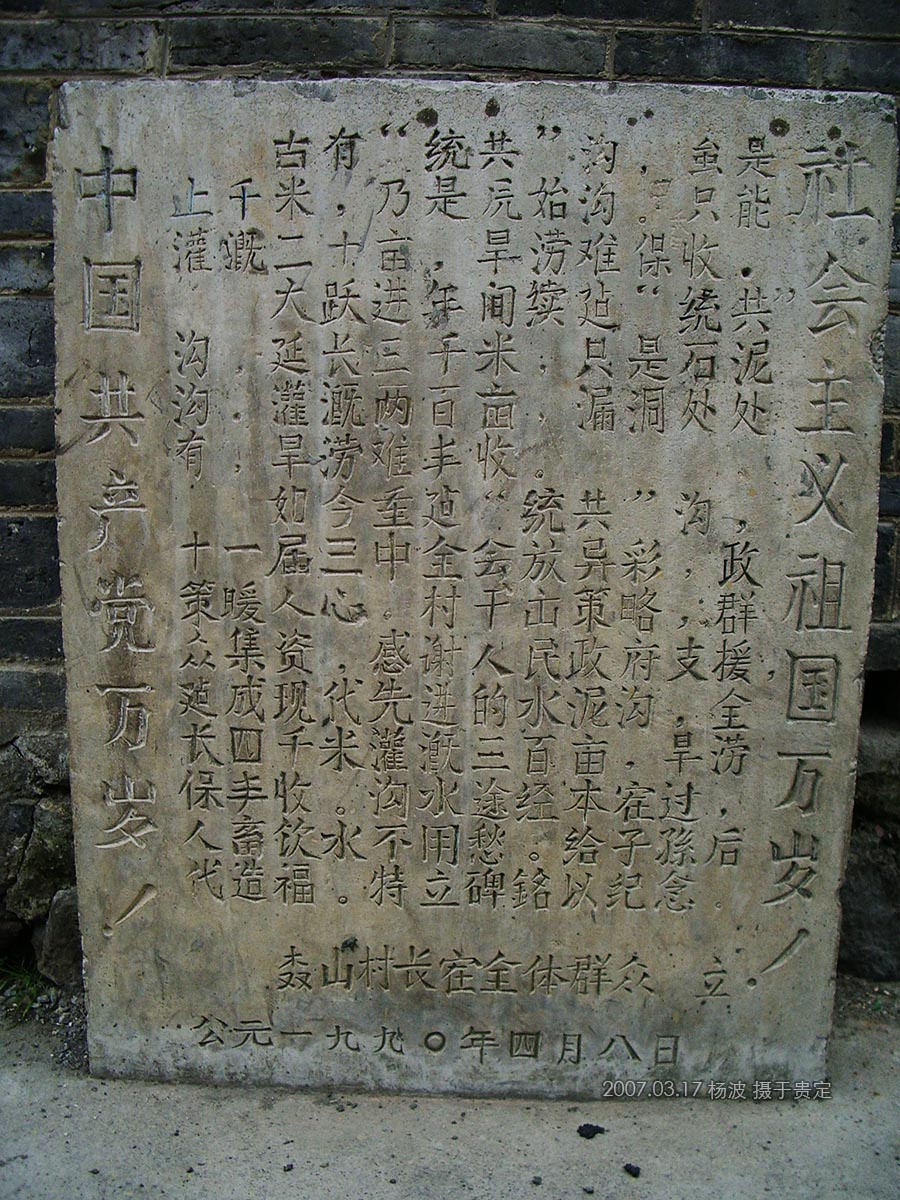 中国共产党万岁！
古有“统共”沟，虽是
止千米，乃是原始沟。只能
灌溉二十亩，旱涝难保收.”
大跃进年间续延“统共
沟，延长三千米，只是石泥
沟，灌溉两百亩，漏洞处处
有，旱涝难丰收。
如今重延“统共”沟，
十一届三中全会放异彩，政
策暖人心。村干出策略，支群
众集资，感谢人民政府，援
延成现代先进的水泥沟，全
长四千米。灌溉三百亩，旱涝
保丰收。沟水途经本寨过，
人畜饮水不用愁。给子孙后
代造福。特立碑銘以纪念
社会主义祖国万岁！
森山村长寨全体群众 立
公元一九九〇年四月八日
2007.03.17 杨波 摄于贵定